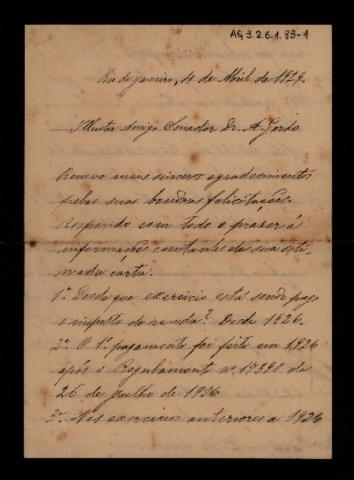 AG 3.2.6.1.83-1
Rio de janeiro, 4 de Abril de 1929.
Illustre Amigo Senador Dr. A. Gordo
Renovo meus sinceros agradecimentos
pelas suas bondosas felicitações.
Respondo com todo o prazer á
informações constante de sua esti-
mada carta.
1º. Desde que exercicio está sendo pago
o imposto de renda? Desde 1926.
2º. O 1º. pagamento foi feito em 1926
após o Regulamento nº. 17390 de
26 de julho de 1926
3º. Nos exercicios anteriores a 1926